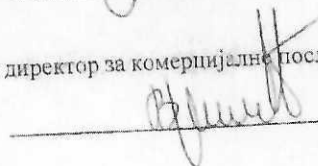 директор за комерцијалне посл